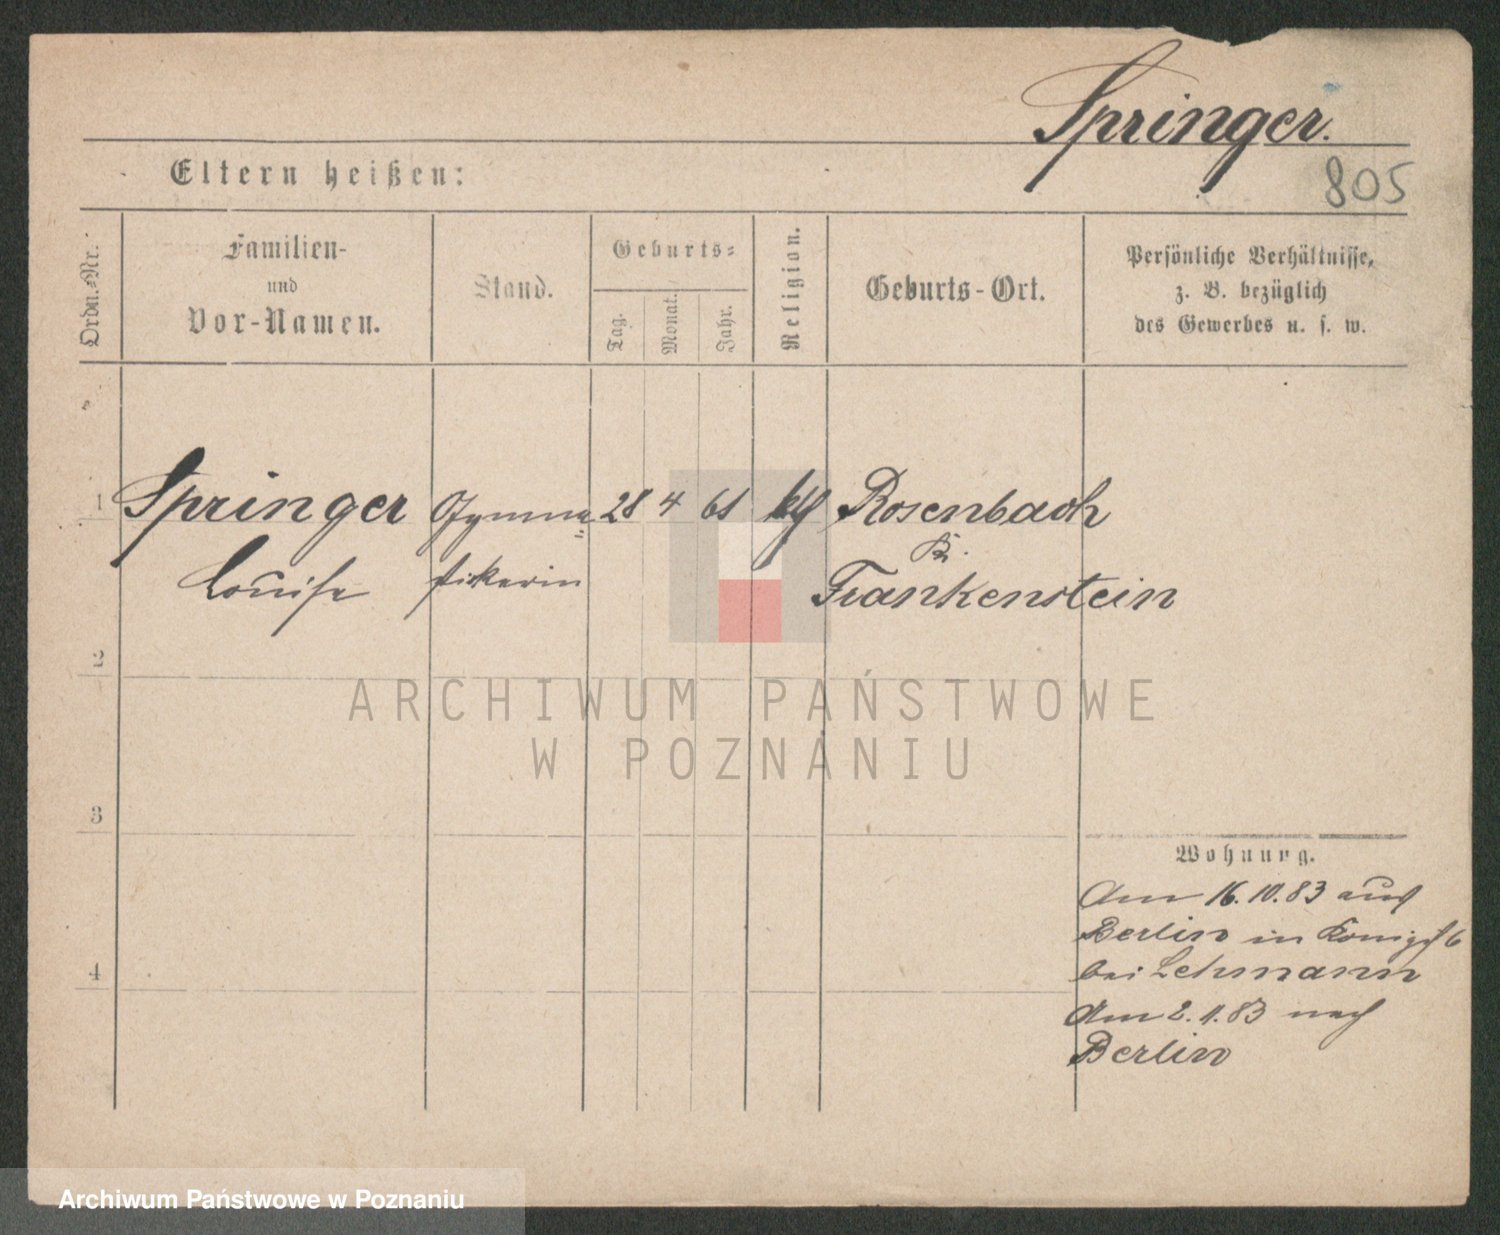 Springer.
805
Eltern heißen:
Ordn.-Nr.
Familien-
und
Vor-Namen.
Stand.
Geburts-
Tag.
Monat.
Jahr.
Religion.
Geburts-Ort.
Persönliche Verhältnisse,
z. B. bezüglich
des Gewerbes u. s. w.
1
Springer Gymna= 28 4 61 kth Rosenbach
K.
Louise stikerin Frankenstein
2
ARCHIWUM PAŃSTWOWE
W POZNANIU
3
Wohnung.
Am 16.10.83 aus
Berlin in Königst 6
4
bei Lehmann
Am 2.1.83 nach
Berlin
Archiwum Państwowe w Poznaniu